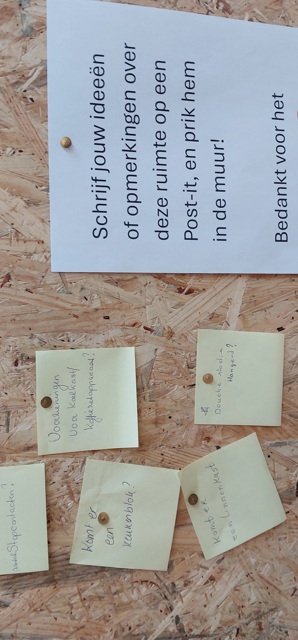 Schrijf jouw ideeën
of opmerkingen over
deze ruimte op een
Post-it, en prik hem
in de muur!
Bedankt voor het
Voorzieningen
voor koelkast/
koffiezetapparaat?
Komt er
een
keukenblok?
Komt er
een linnenkast
Stopcontacten?
Douche